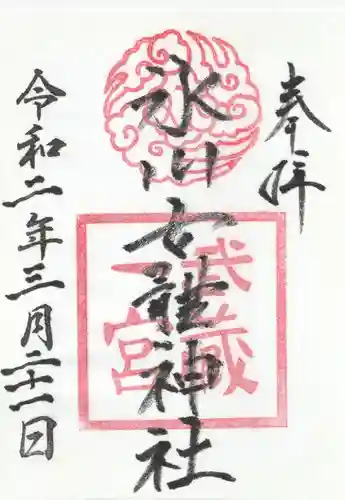 奉拝
氷川女體神社
武蔵一宮
令和二年三月二十一日